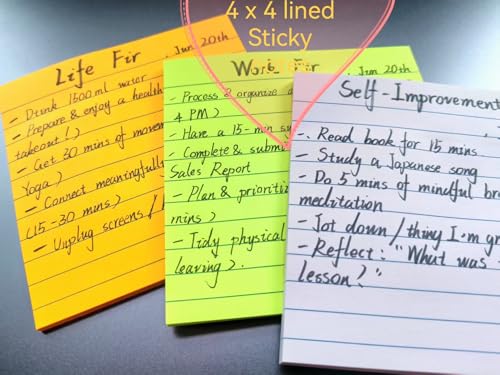 4 x 4 lined
Sticky
Life Fir
Jun 20th
- Drink 1500 ml water
- Prepare & enjoy a health
takeout!)
- Get 30 mins of movem
Yoga)
- Connect meaningfully
(15-30 mins)
- Unplug screens /
Work Fir
Jun 20th
- Process & organize
4 PM)
- Have a 15-min sy
- Complete & submi
Sales Report
- Plan & prioritiz
mins)
- Tidy physical
leaving).
Self-Improvement
- Read book for 15 mins
- Study a Japanese song
- Do 5 mins of mindful bre
meditation
- Jot down / thing I'm gr
- Reflect: "What was
lesson?"